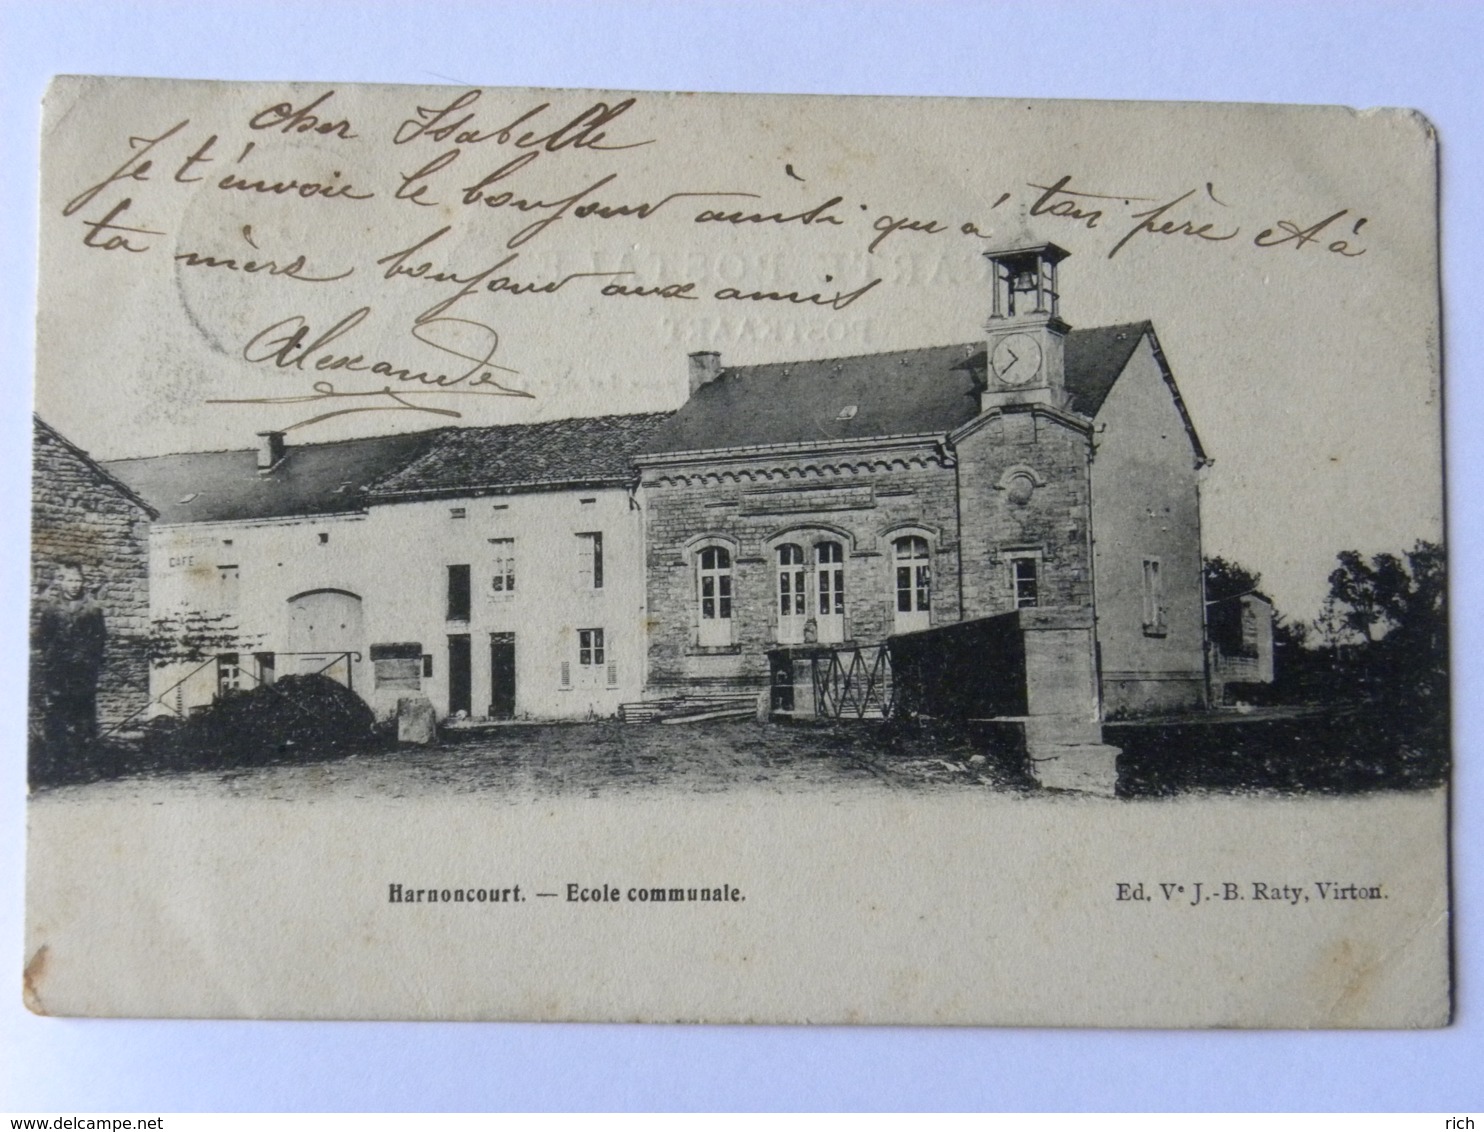 cher Isabelle
Je t'envoie le bonjour ainsi qu'à ton père et à
ta mère bonjour aux amis
Alexandre
CARTE POSTALE
POSTKAART
CAFE
Harnoncourt. — Ecole communale.
Ed. Ve J.-B. Raty, Virton.
delcampe.net
rich